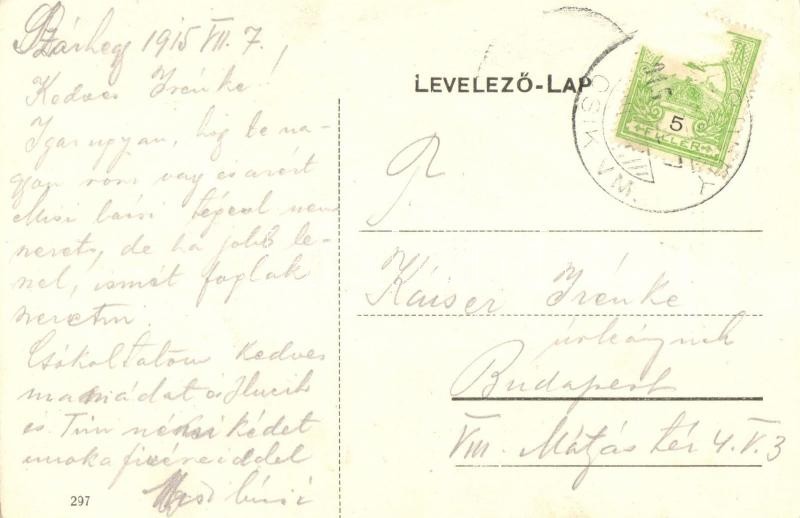 Szárhegy 1915 VII. 7.
Kedves Irénke!
Igaz ugyan, hogy te na-
gyon rossz vagy és azért
Misi bácsi téged nem
szeret, de ha jobb le-
szel, ismét foglak
szeretni
Csókoltatom kedves
mamádat és
és nénikédet
unoka fivéreiddel
Misi bácsi
297
LEVELEZŐ-LAP
5
FILLER
T.
Káiser Irénke
úrleánynak
Budapest
VIII. Mátyás tér 4. V. 3